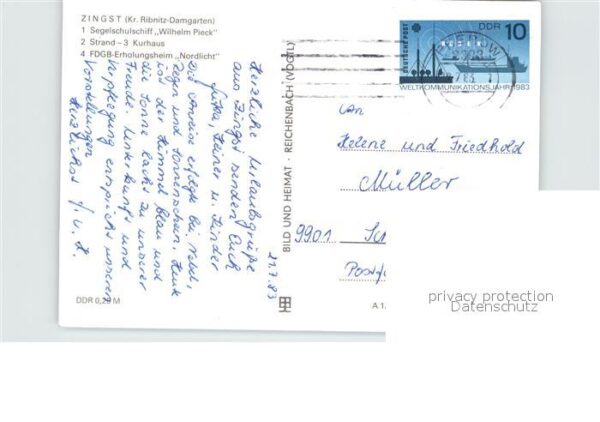 ZINGST (Kr. Ribnitz-Damgarten)
1 Segelschulschiff „Wilhelm Pieck"
2 Strand – 3 Kurhaus
4 FDGB-Erholungsheim „Nordlicht"
21.7.83
Herzliche Urlaubsgrüße
aus Zingst senden Euch
Jutta, Heiner u. Kinder
Die Anreise erfolgte bei Nebel,
Regen und Sonnenschein. Heute
ist der Himmel blau und
die Sonne lacht zu unserer
Freude. Unterkunft und
Verpflegung entspricht unseren
Vorstellungen
Herzlichst J. u. H.
DDR 0,20 M
BILD UND HEIMAT · REICHENBACH (VOGTL)
DEUTSCHE POST
DDR 10
WELTKOMMUNIKATIONSJAHR 1983
An
Helene und Friedhold
Müller
9901
A 1
privacy protection
Datenschutz